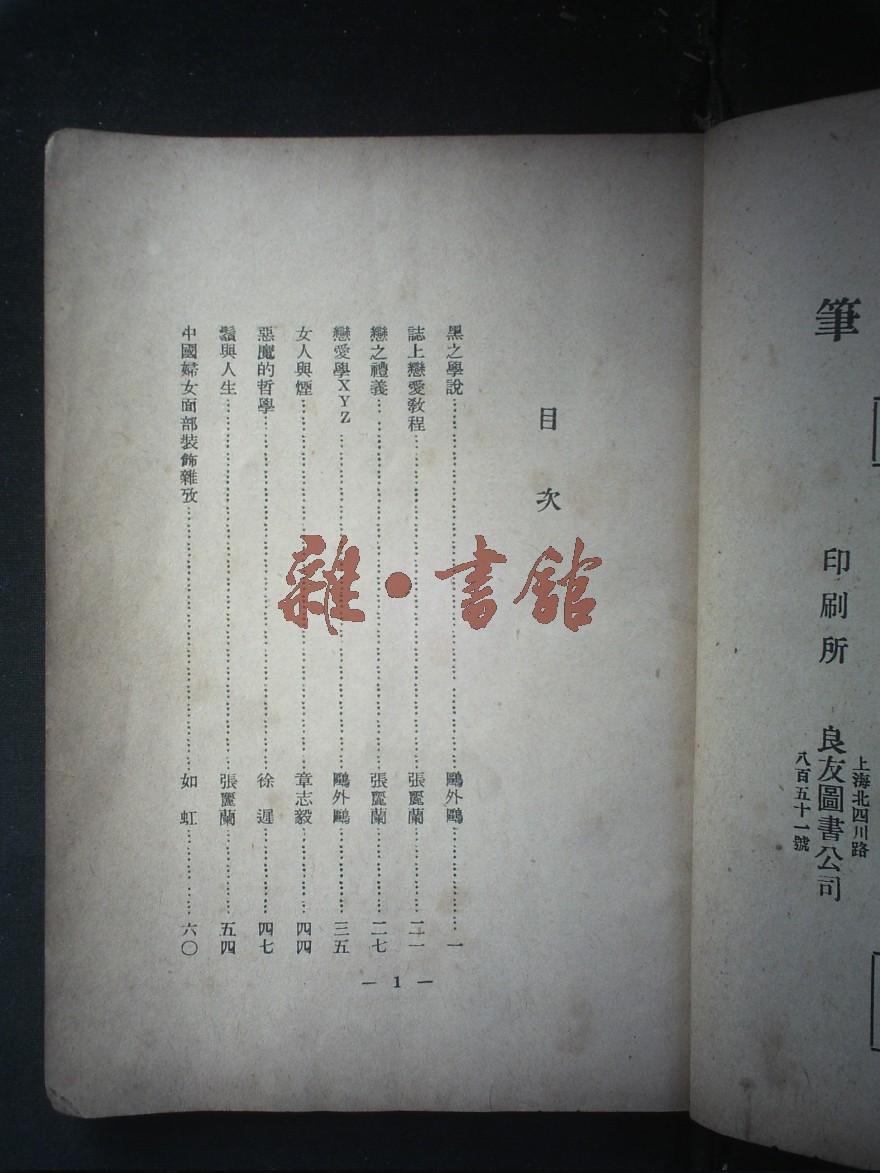 筆
印刷所 良友圖書公司
上海北四川路
八百五十一號
目次
黑之學說 鷗外鷗 一
誌上戀愛教程 張麗蘭 二一
戀之禮義 張麗蘭 二七
戀愛學XYZ 鷗外鷗 三五
女人與煙 章志毅 四四
惡魔的哲學 徐遲 四七
鬚與人生 張麗蘭 五四
中國婦女面部裝飾雜攷 如虹 六〇
— 1 —
雜·書館